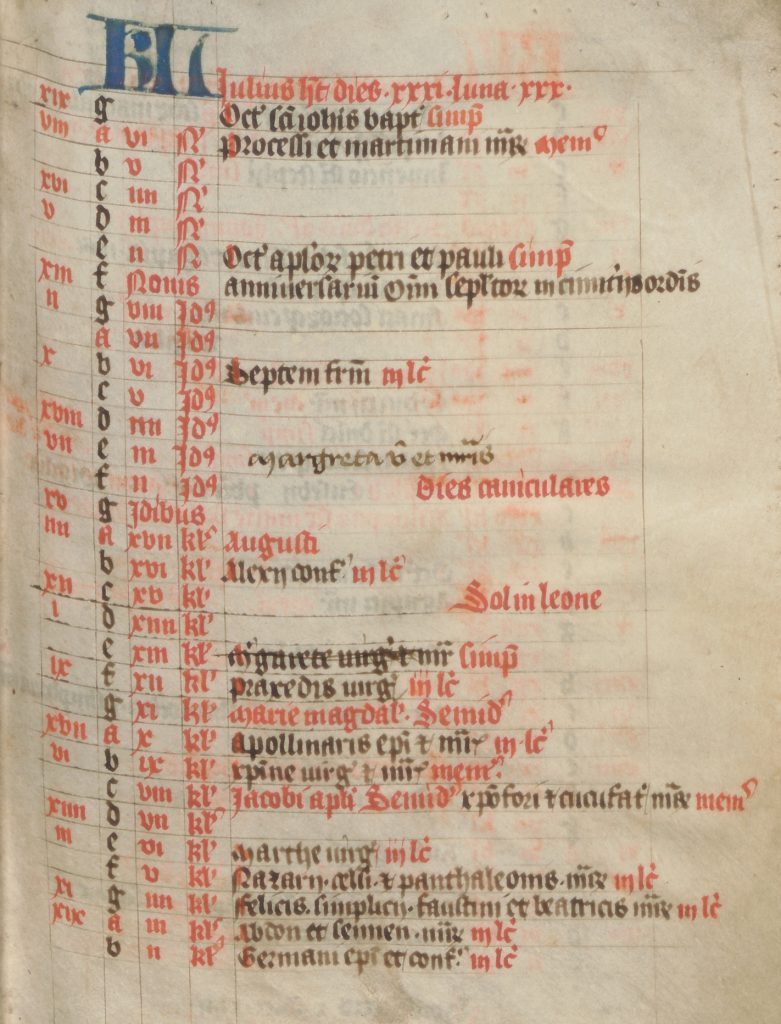 kl Julius ht dies · xxxi · luna · xxx ·
xix g Oct' sci iohis bapt' simp
viii a vi N' Processi et martiniani mr̄e mem'
b v N'
xvi c iiii N'
v d iii N'
e ii N' Oct' aplor petri et pauli simp
xiii f Nonis anniversariu Oim sepltor in cimitijs ordis
ii g viii Jd9
a vii Jd9
x b vi Jd9 Septem frm iij lc'
c v Jd9
xviii d iiii Jd9
vii e iii Jd9 Margreta v et mris
f ii Jd9 Dies caniculares
xv g Jdibus
iiii a xvii kl' Augusti
b xvi kl' Alexij conf' iij lc'
xii c xv kl' Sol in leone
i d xiiii kl'
e xiii kl' M'garete uirg' & mr' simp
ix f xii kl' Praxedis uirg' iij lc'
g xi kl' Marie magdal' · Semid'
xvii a x kl' Apollinaris epi & mr' iij lc'
vi b ix kl' xpine uirg' & mr' mem'
c viii kl' Jacobi apli Semid' xpofori & cucufat' mr̄e mem'
xiiii d vii kl'
iii e vi kl' Marthe uirg' iij lc'
f v kl' Nazarij · celsi · & panthaleonis · mr̄e iij lc'
xi g iiii kl' Felicis · simplicij · faustini et beatricis mr̄e iij lc'
xix a iii kl' Abdon et sennen · mr̄e iij lc'
b ii kl' Germani epi et conf' · iij lc'